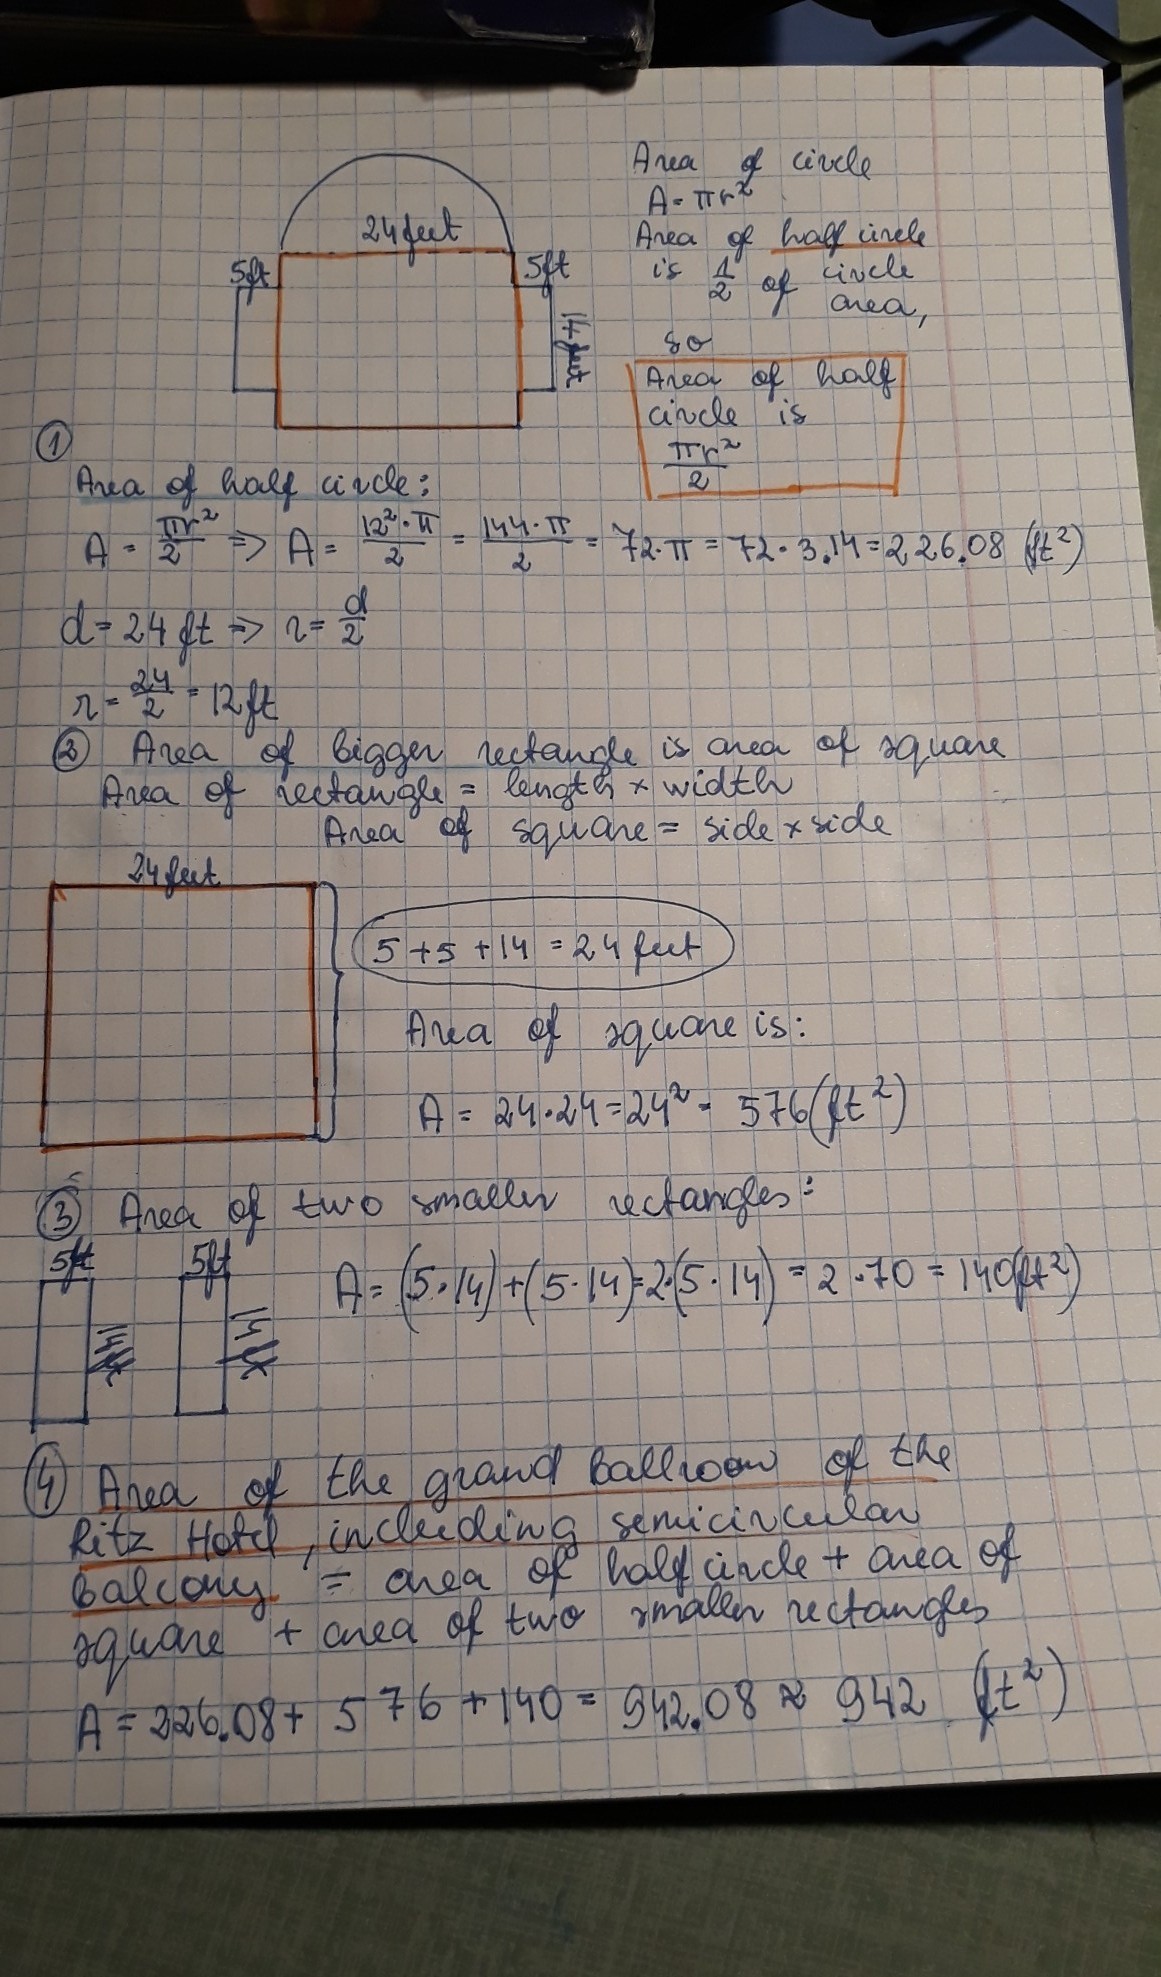 Area of circle
A = πr²
24 feet
Area of half circle
5ft
5ft
is 1/2 of circle
area,
14 feet
so
Area of half
circle is
πr²/2
①
Area of half circle:
A = πr²/2 => A = 12²·π/2 = 144·π/2 = 72·π = 72·3.14 = 226.08 (ft²)
d = 24 ft => r = d/2
r = 24/2 = 12 ft
② Area of bigger rectangle is area of square
Area of rectangle = length × width
Area of square = side × side
24 feet
5 + 5 + 14 = 24 feet
Area of square is:
A = 24·24 = 24² = 576 (ft²)
③ Area of two smaller rectangles:
5ft
5ft
A = (5·14) + (5·14) = 2·(5·14) = 2·70 = 140 (ft²)
④ Area of the grand ballroom of the
Ritz Hotel, including semicircular
balcony = area of half circle + area of
square + area of two smaller rectangles
A = 226.08 + 576 + 140 = 942.08 ≈ 942 (ft²)